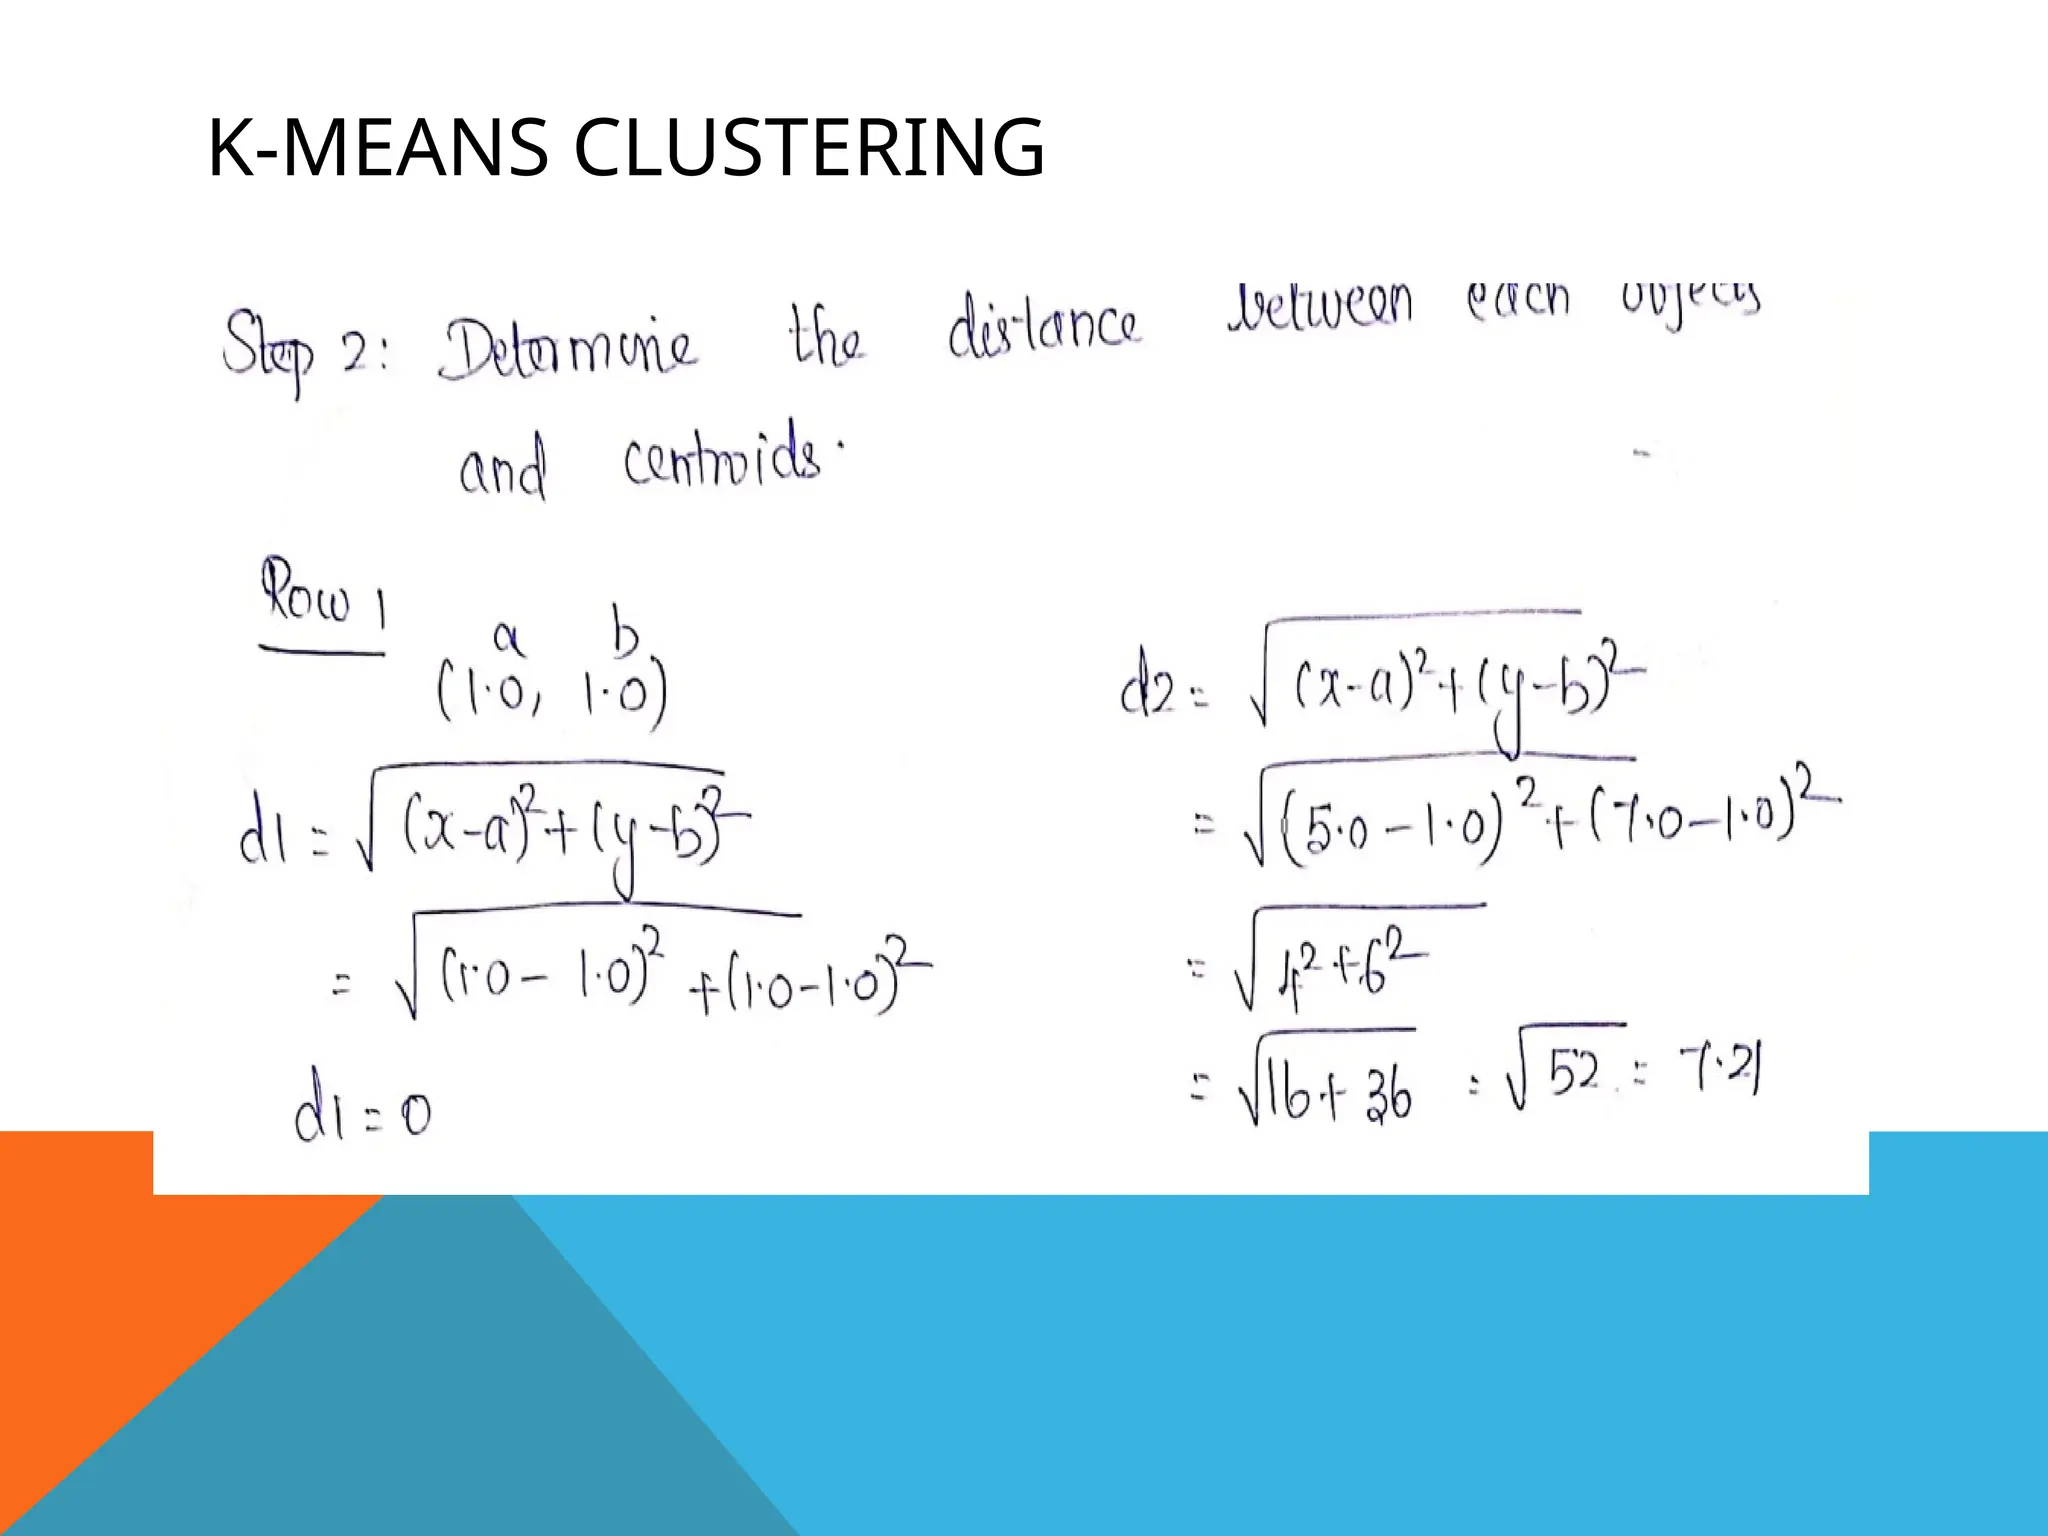 K-MEANS CLUSTERING
Step 2: Determine the distance between each objects
and centroids.
Row 1
a b
(1.0, 1.0)
d1 = √(x-a)²+(y-b)²
= √(1.0 - 1.0)² +(1.0-1.0)²
d1 = 0
d2 = √(x-a)²+(y-b)²
= √(5.0-1.0)²+(7.0-1.0)²
= √4²+6²
= √16+36 = √52 = 7.21